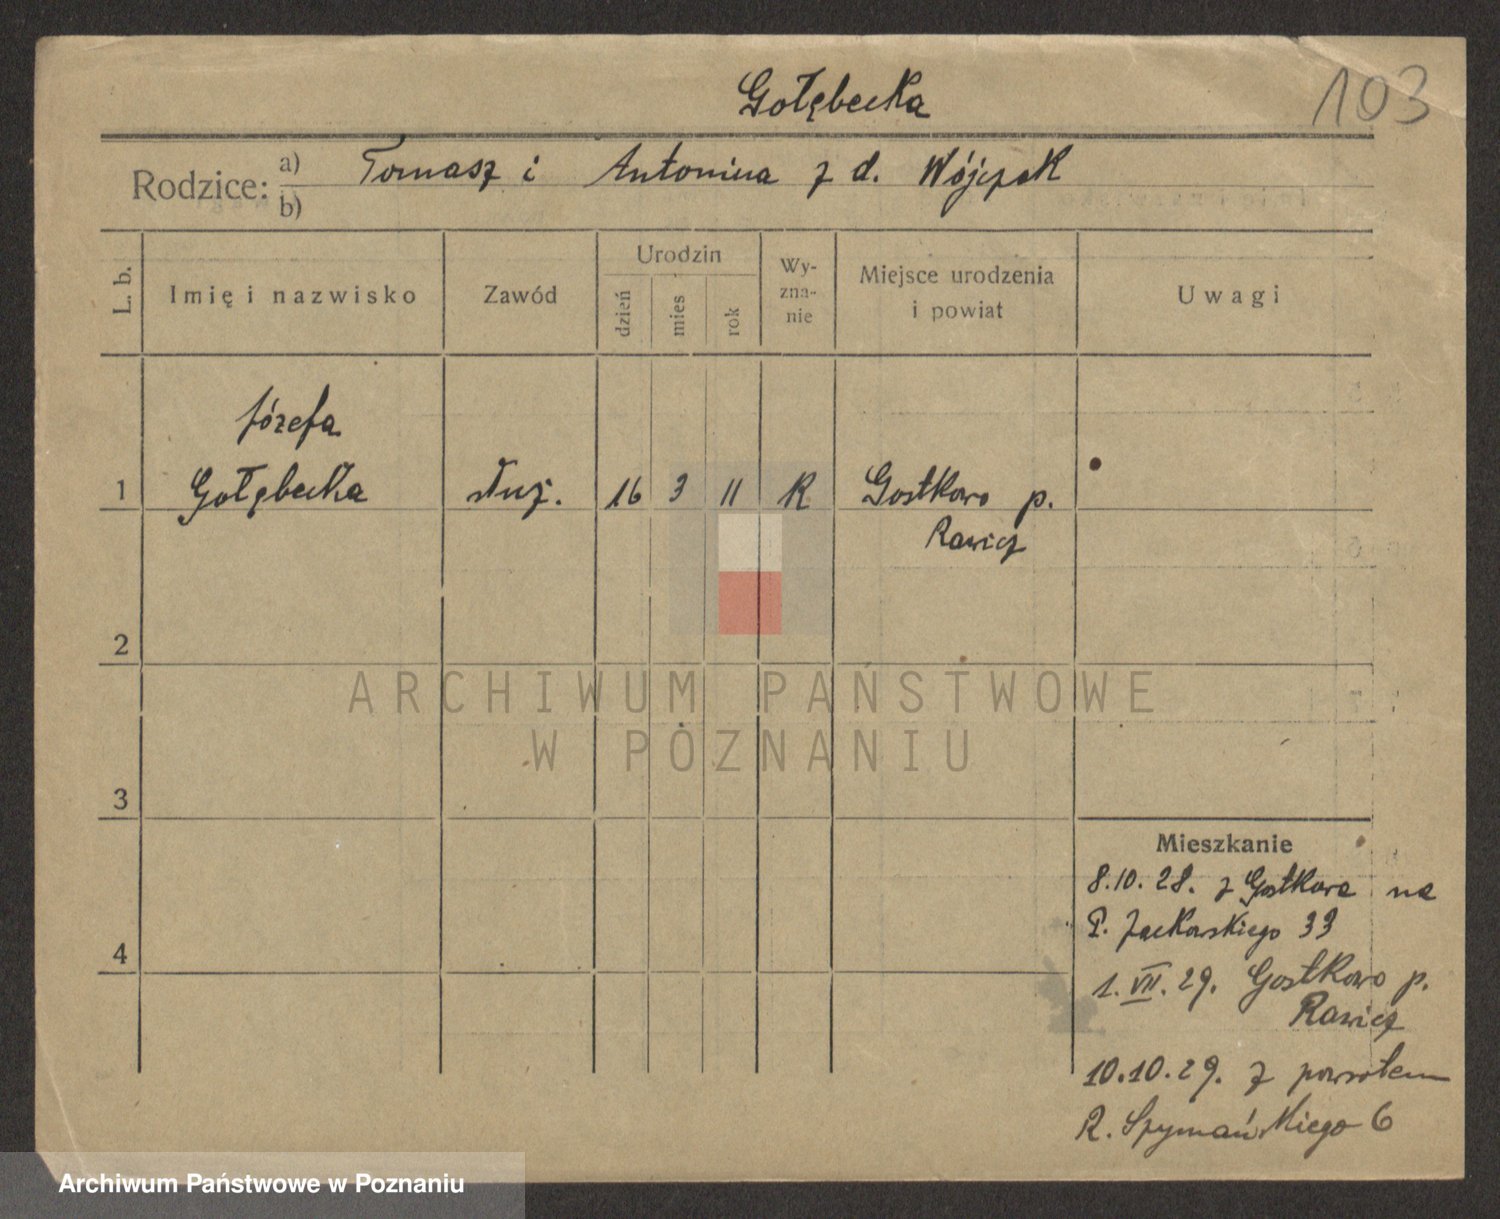 Gołębecka
103
Rodzice: a) Tomasz i Antonina z d. Wójczak
b)
L. b.
Imię i nazwisko
Zawód
Urodzin
dzień
mies
rok
Wy-
zna-
nie
Miejsce urodzenia
i powiat
Uwagi
Józefa
1 Gołębecka służ. 16 3 11 R Gostkowo p.
Rawicz
2
ARCHIWUM PAŃSTWOWE
W POZNANIU
3
Mieszkanie
8.10.28. z Gostkowa na
P. Jackowskiego 33
4
1.VII.29. Gostkowo p.
Rawicz
10.10.29. z powrotem
R. Szymańskiego 6
Archiwum Państwowe w Poznaniu